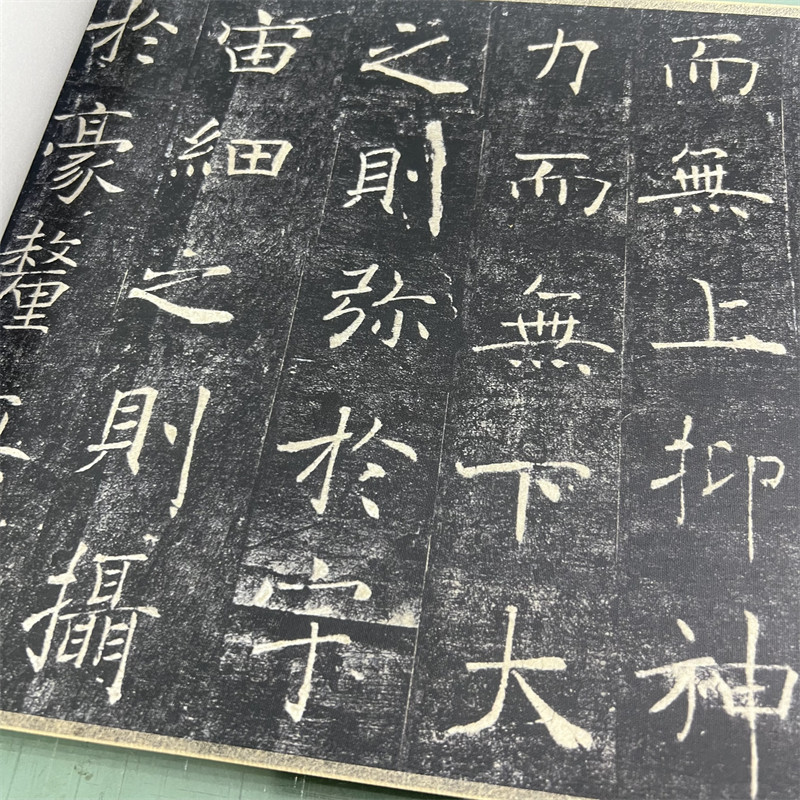 而無上抑神
力而無下大
之則弥於宇
宙細之則攝
於豪釐